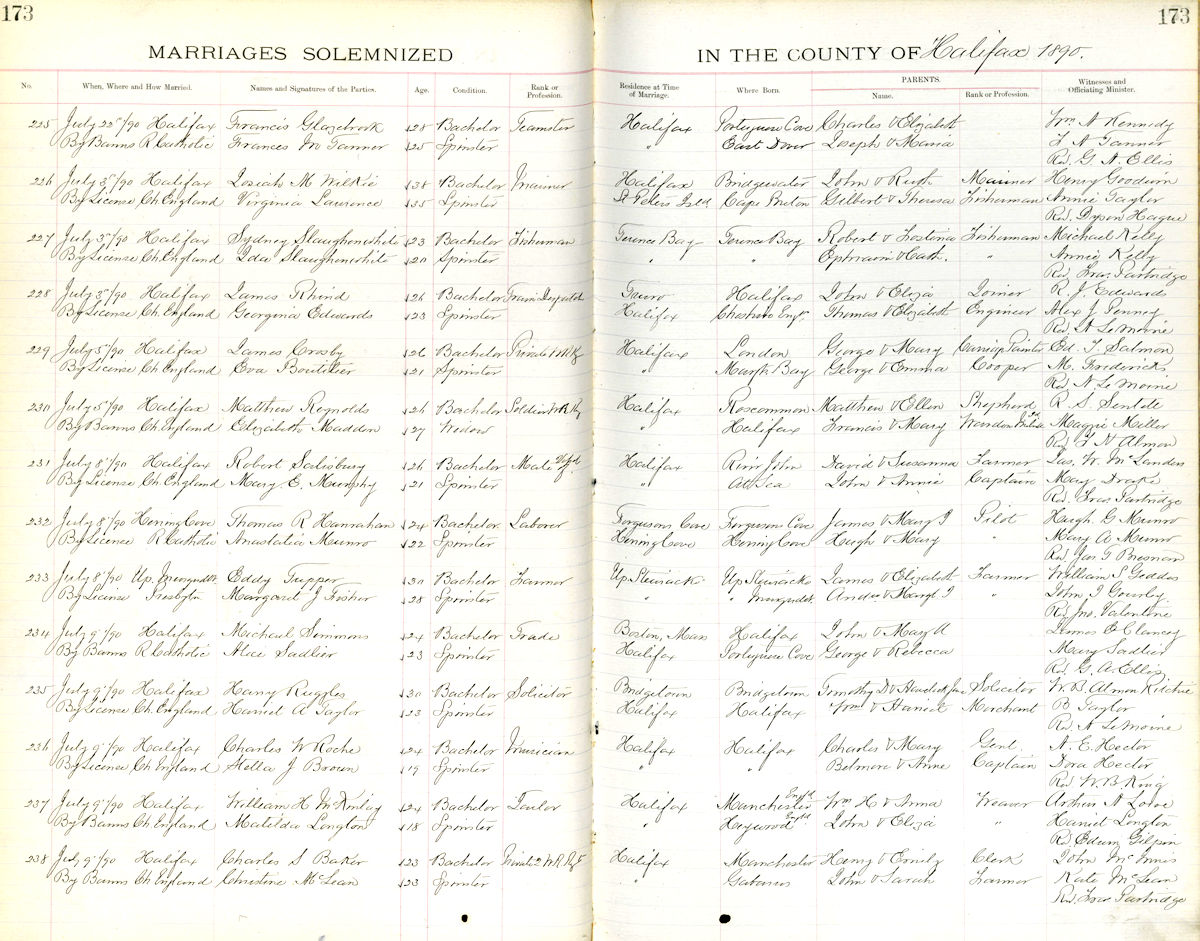 173
173
MARRIAGES SOLEMNIZED
IN THE COUNTY OF Halifax 1890.
No. When, Where and How Married. Names and Signatures of the Parties. Age. Condition. Rank or Profession. Residence at Time of Marriage. Where Born. PARENTS. Name. Rank or Profession. Witnesses and Officiating Minister.
225 July 22/90 Halifax Francis Glazebrook 28 Bachelor Teamster Halifax Portuguese Cove Charles & Elizabeth Wm A Kennedy
By Banns R Catholic Frances M Tanner 25 Spinster " East Dover Joseph & Maria F A Tanner
Rev. G. A. Ellis
226 July 3/90 Halifax Josiah M Wilkie 38 Bachelor Mariner Halifax Bridgewater John & Ruth Mariner Henry Goodwin
By License Ch England Virginia Lawrence 35 Spinster St Peters Cape Breton Gilbert & Theresa Fisherman Annie Taylor
Rev. Dyson Hague
227 July 3/90 Halifax Sydney Slaughenwhite 23 Bachelor Fisherman Terence Bay Terence Bay Robert & Fisherman Michael Kelly
By License Ch. England Ida Slaughenwhite 20 Spinster " " Ephraim & Cath. " Annie Kelly
Rev. Fras. Partridge
228 July 3/90 Halifax James Rhind 26 Bachelor Train Dispatch Truro Halifax John & Eliza Joiner R. J. Edwards
By License Ch. England Georgina Edwards 23 Spinster Halifax Cheshire Eng. Thomas & Elizabeth Engineer Alex J Penney
Rev. LeMoine
229 July 5/90 Halifax James Crosby 26 Bachelor Private Halifax London George & Mary Carriage Painter Ed. T. Salmon
By License Ch England Eva Boutilier 21 Spinster " Margts Bay George & Emma Cooper M. Fredericks
Rev. N. LeMoine
230 July 5/90 Halifax Matthew Reynolds 26 Bachelor Soldier W R Rg Halifax Roscommon Matthew & Ellen Shepherd R S
By Banns Ch. England Elizabeth Madden 27 Widow " Halifax Francis & Mary Warden Maggie Miller
Rev. Almon
231 July 8/90 Halifax Robert Salisbury 26 Bachelor Mate Halifax River John David & Susanna Farmer Jas. W. McLanders
By License Ch. England Mary E. Murphy 21 Spinster " At Sea John & Annie Captain May Drake
Rev. Fras. Partridge
232 July 8/90 Herring Cove Thomas R Hanrahan 24 Bachelor Laborer Fergusons Cove Ferguson Cove James & Margt Pilot Hugh G Munro
By License R Catholic Anastatia Munro 22 Spinster Herring Cove Herring Cove Hugh & Mary " Mary A Munro
Rev. Jas. T Bresnan
233 July 8/90 Up. Musquodt. Eddy Tupper 20 Bachelor Farmer Up. Stewiacke Up Stewiacke James & Elizabeth Farmer William S Geddes
By License Presbytn Margaret J Fisher 28 Spinster " " Musquodt. Andw & Margt " John Gourly
Rev. Jno. Valentine
234 July 9/90 Halifax Michael Simmons 24 Bachelor Trade Boston, Mass Halifax John & Mary A James E Clancey
By Banns R Catholic Alice Sadlier 23 Spinster Halifax Portuguese Cove George & Rebecca Mary Sadlier
Rev. G. A. Ellis
235 July 9/90 Halifax Harry Ruggles 30 Bachelor Solicitor Bridgetown Bridgetown Timothy D & Jane Solicitor W. B. Almon Ritchie
By License Ch. England Harriet A Taylor 23 Spinster Halifax Halifax Wm & Harriet Merchant B Taylor
Rev. N LeMoine
236 July 9/90 Halifax Charles W Roche 24 Bachelor Musician Halifax Halifax Charles & Mary Gent. A. E. Hector
By License Ch England Stella J Brown 19 Spinster " " Belmore & Anne Captain Dora Hector
Rev. W. B. King
237 July 9/90 Halifax William H McKinlay 24 Bachelor Tailor Halifax Manchester Engd Wm H & Anna Weaver Arthur A Love
By Banns Ch. England Matilda Longton 18 Spinster " Heywood Engd John & Eliza " Harriet Longton
Rev. Edwin Gilpin
238 July 9/90 Halifax Charles S Baker 23 Bachelor Private W. R. Rgt Halifax Manchester Henry & Emily Clerk John McInnis
By Banns Ch England Christine McLean 23 Spinster Gabarus John & Sarah Farmer Kate McLean
Rev. Fras Partridge